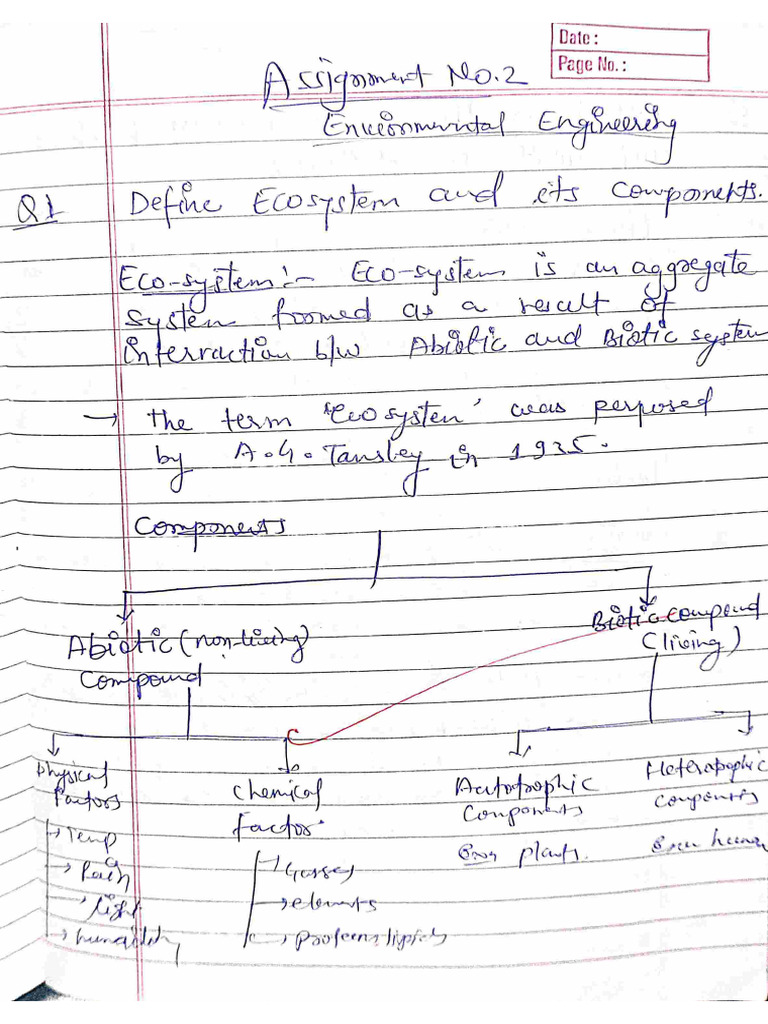 Date :
Page No. :
Assignment No. 2
Environmental Engineering
Q1 Define Ecosystem and its components.
Eco-system :- Eco-system is an aggregate
system foomed as a result of
interraction b/w Abiotic and Biotic system
→ the term 'ecosysten' was perposed
by A.G. Tansley in 1935.
Components
Abiotic (non-living)
compound
Biotic compound
(living)
Physical
factors
Chemical
factor
Autotrophic
Components
Heterophic
components
→ Temp
→ Rain
→ light
→ humidity
→ Gasses
→ elements
→ Proteens lipids
plants.